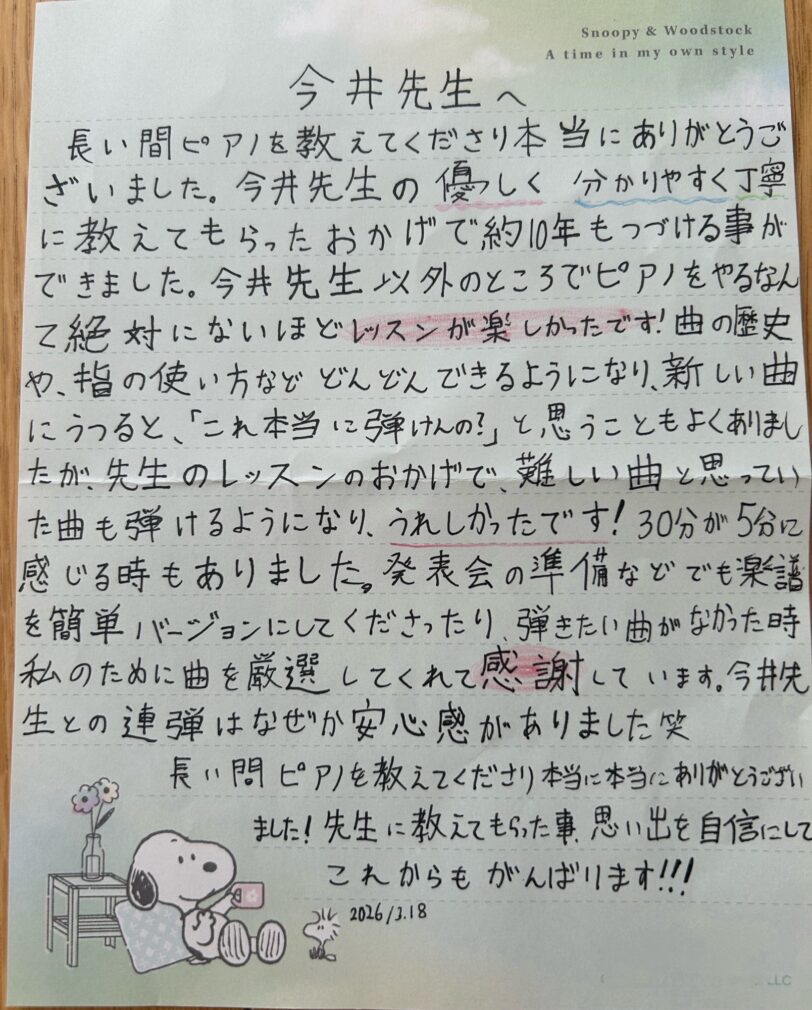 Snoopy & Woodstock
A time in my own style
今井先生へ
長い間ピアノを教えてくださり本当にありがとうご
ざいました。今井先生の優しく 分かりやすく丁寧
に教えてもらったおかげで約10年もつづける事が
できました。今井先生以外のところでピアノをやるなん
て絶対にないほどレッスンが楽しかったです!曲の歴史
や、指の使い方など どんどんできるようになり、新しい曲
にうつると、「これ本当に弾けんの?」と思うこともよくありまし
たが、先生のレッスンのおかげで、難しい曲と思ってい
た曲も弾けるようになり、うれしかったです!30分が5分に
感じる時もありました。発表会の準備などでも楽譜
を簡単バージョンにしてくださったり、弾きたい曲がなかった時
私のために曲を厳選してくれて感謝しています。今井先
生との連弾はなぜか安心感がありました笑
長い間ピアノを教えてくださり本当に本当にありがとうござい
ました!先生に教えてもらった事、思い出を自信にして
これからもがんばります!!!
2026/3.18
LLC